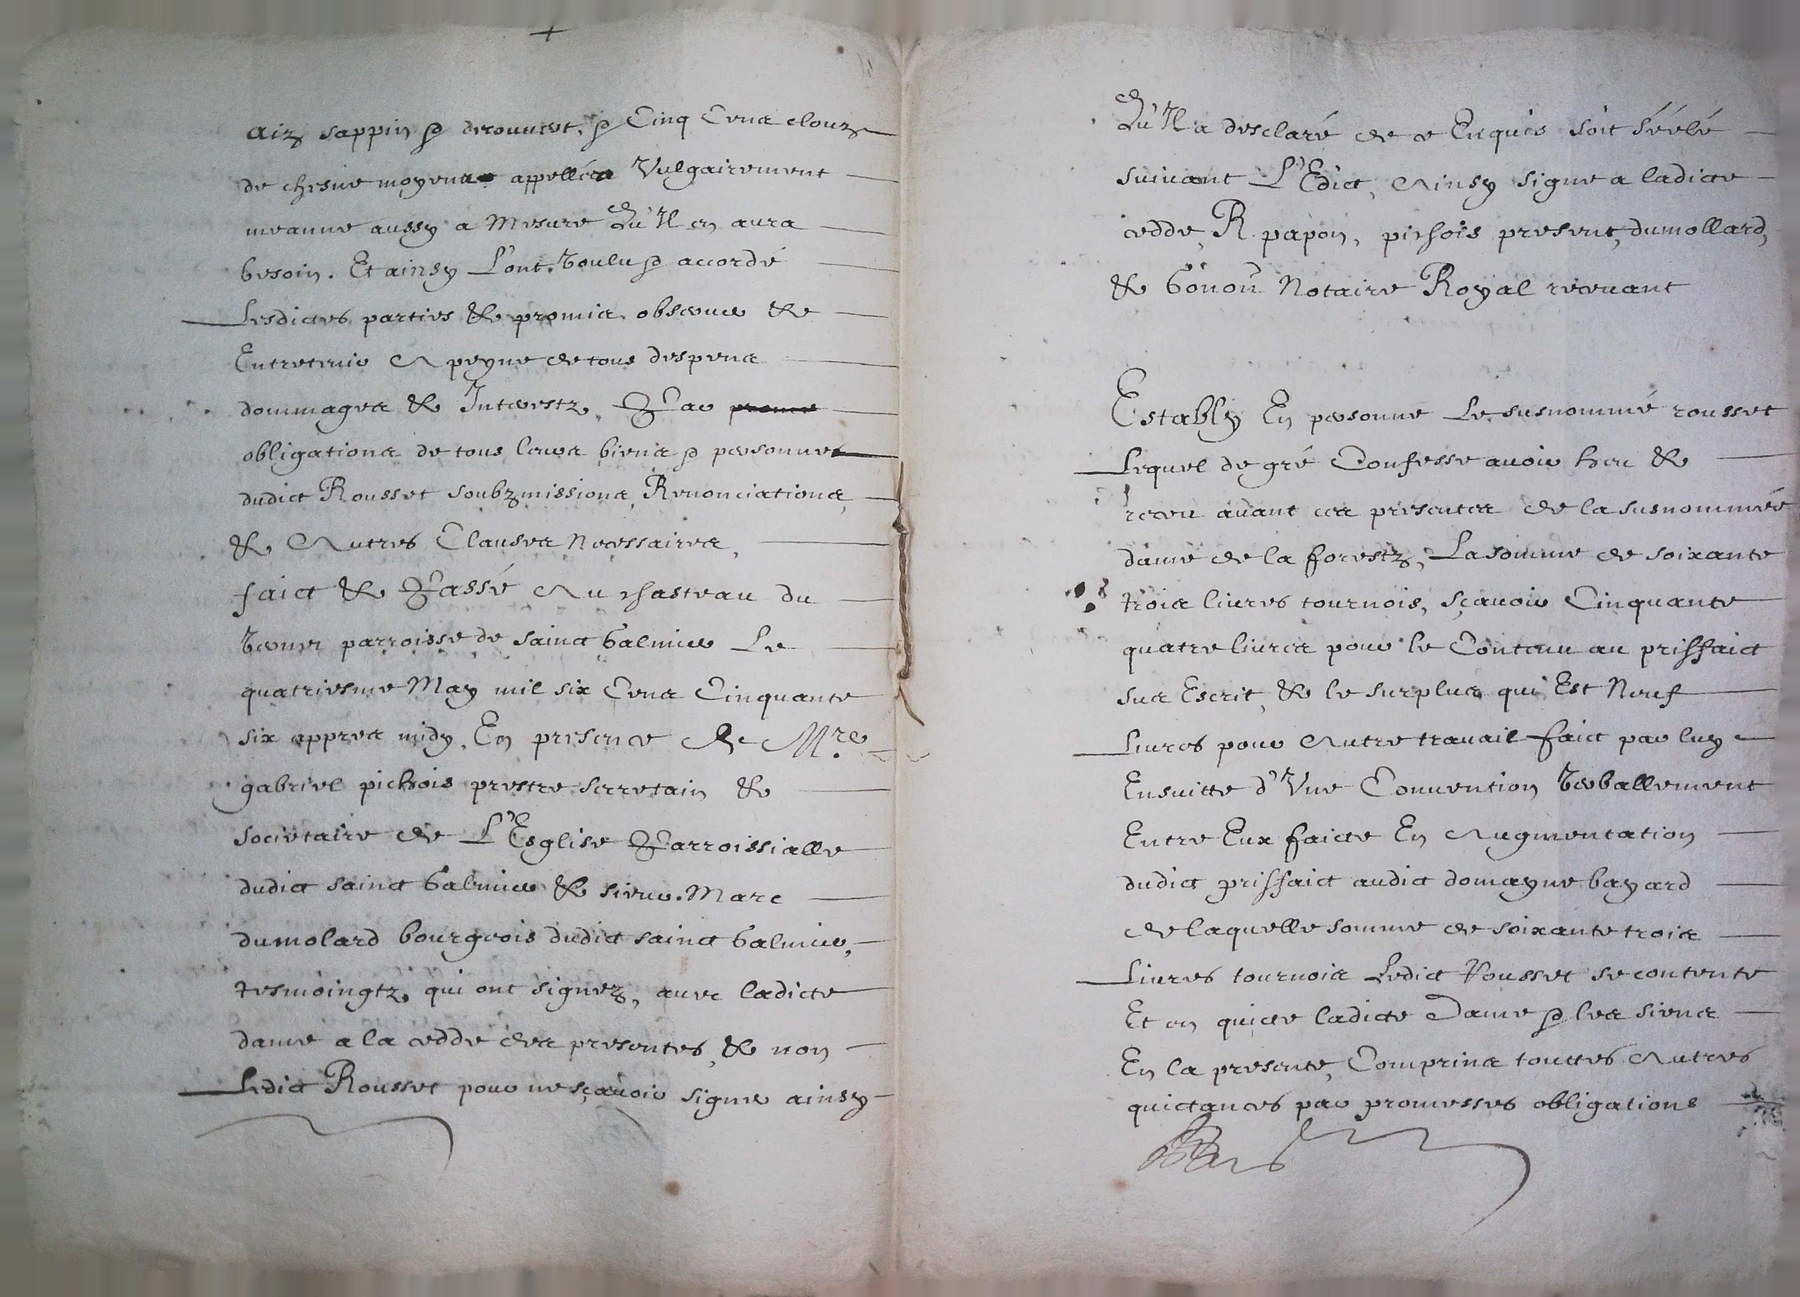 aiz sappin & derouvert, & Cinq Cens clouz
de chesne moyens appellés Vulgairement
meanne aussy a Mesure Qu'Il en aura
besoin. Et ainsy L'ont Voulu & accordé
Lesdictes parties & promis observer &
Entretenir A peyne de tous despens
dommages & Interestz, Par
obligations de tous leurs biens & personnes
dudict Rousset soubzmissions, Renonciations,
& Autres Clauses Necessaires,
faict & Passé Au chasteau du
Verney parroisse de sainct Galmier Le
quatriesme May mil six Cens Cinquante
six appres midy, En presence de Mre
gabriel pichois prestre secretain &
societaire de L'Esglise Parroissialle
dudict sainct Galmier & sieur Marc
dumolard bourgeois dudict sainct Galmier,
tesmoingtz, qui ont signez, avec ladicte
dame a la cedde des presentes, & non
Ledict Rousset pour ne sçavoir signer ainsy
Qu'Il a desclaré de ce Enquis soit séélé
suivant L'Edict, Ainsy signe a ladicte
cedde, R papon, pichois present, dumollard,
& Notaire Royal recevant
Estably En personne Le susnommé rousset
Lequel de gré Confesse avoir heu &
receu avant ces presentes de la susnommée
dame de la forestz, La somme de soixante
trois livres tournois, sçavoir Cinquante
quatre livres pour le Contenu au prisfaict
sus Escrit, & le surplus qui Est Neuf
Livres pour Autre travail faict par luy
Ensuitte d'Une Convention Verballement
Entre Eux faicte En Augmentation
dudict prisfaict audict domayne bayard
de laquelle somme de soixante trois
Livres tournois Ledict Rousset se contente
Et en quicte ladicte Dame & les siens
En la presente, Comprins touttes Autres
quictances par promesses obligations